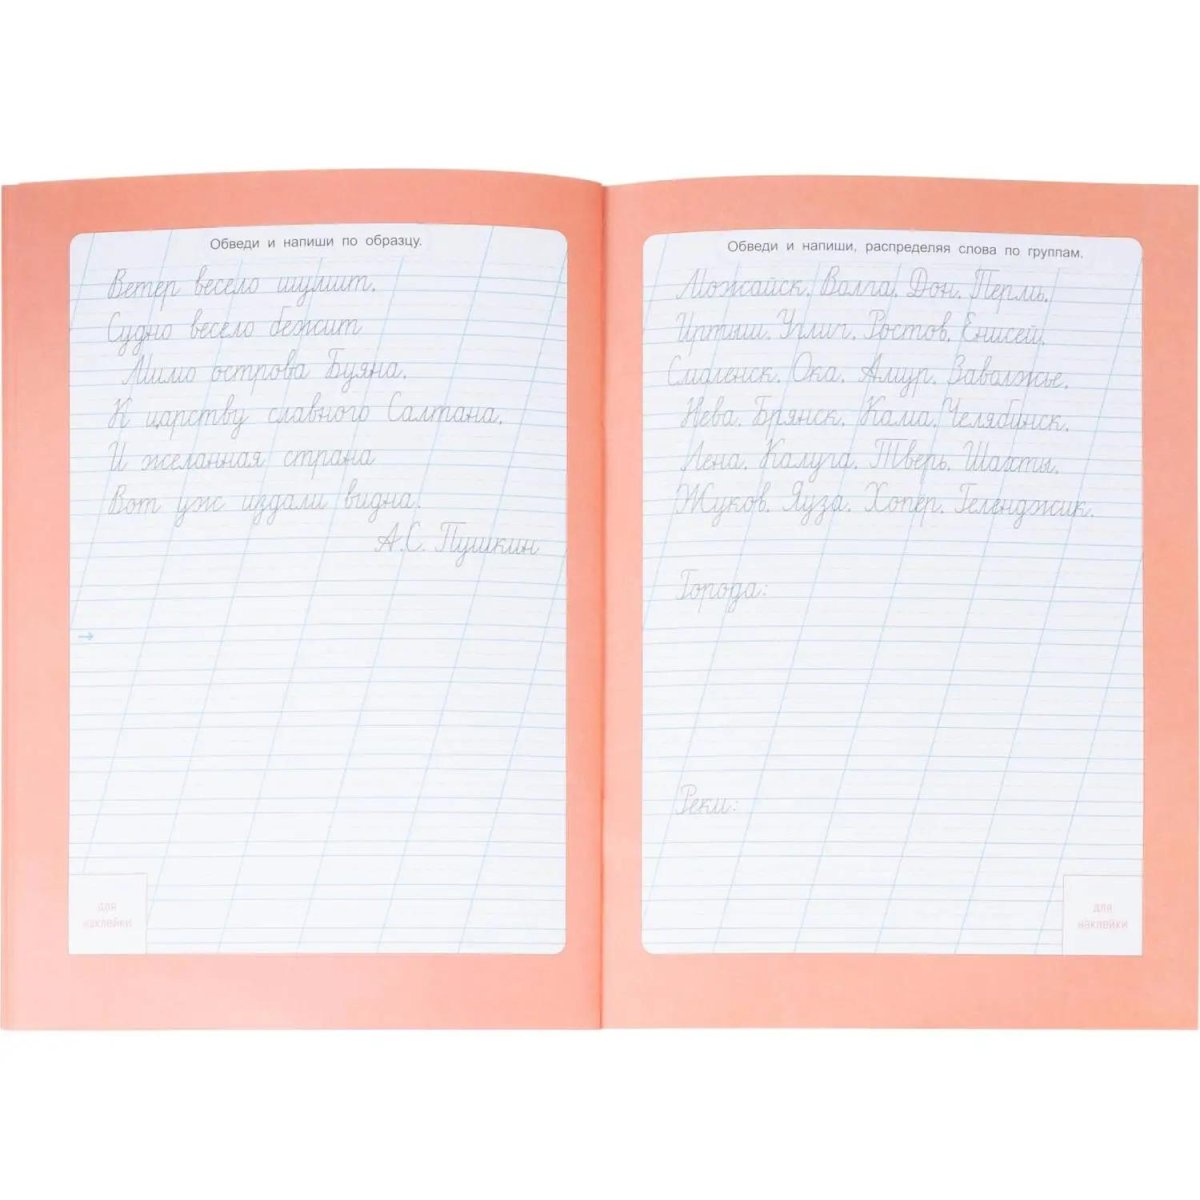 Обведи и напиши по образцу.
Ветер весело шумит,
Судно весело бежит
Мимо острова Буяна,
К царству славного Салтана,
И желанная страна
Вот уж издали видна.
А.С. Пушкин
→
для
наклейки
Обведи и напиши, распределяя слова по группам.
Можайск, Волга, Дон, Пермь,
Иртыш, Углич, Ростов, Енисей,
Смоленск, Ока, Амур, Заволжье,
Нева, Брянск, Кама, Челябинск,
Лена, Калуга, Тверь, Шахты,
Жуков, Яуза, Хопёр, Геленджик.
Города:
Реки:
для
наклейки